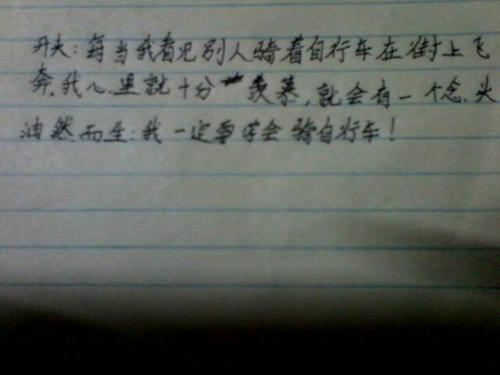 开头：每当我看见别人骑着自行车在街上飞
奔，我心里就十分羡慕，就会有一个念头
油然而生：我一定要学会骑自行车！